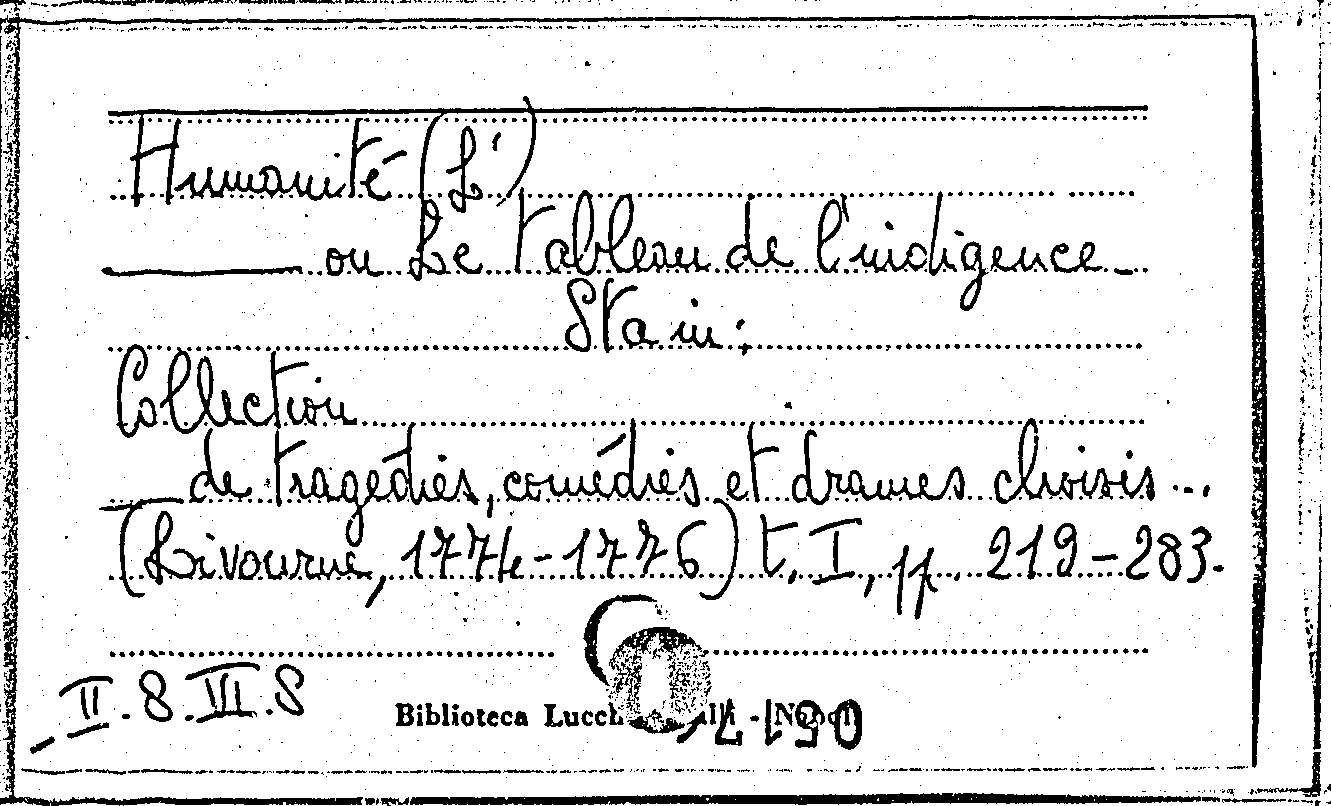 Humanité (L')
ou Le Tableau de l'indigence
Sta in:
Collection
de tragédies, comédies et drames choisis...
(Livourne, 1774-1776) t. I, pp. 219-283.
II.8.VII.8
Biblioteca